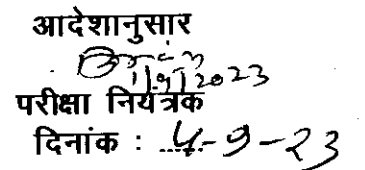 आदेशानुसार
11/9/2023
परीक्षा नियंत्रक
दिनांक : 4-9-23